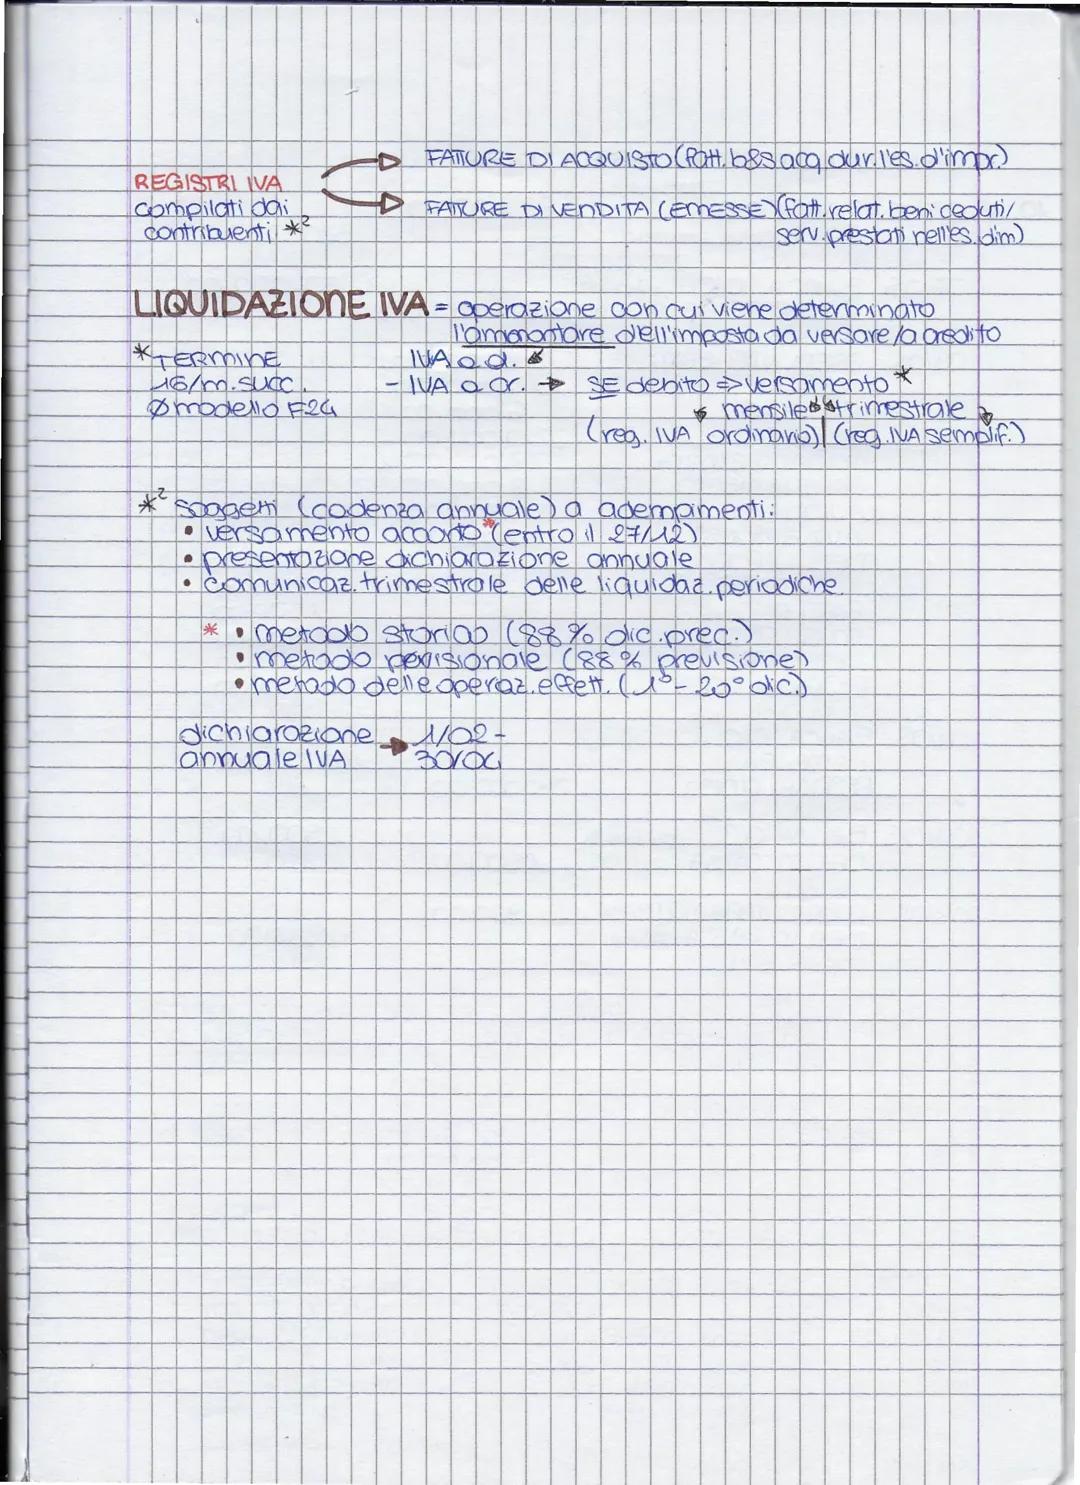 FATTURE DI ACQUISTO (fatt. b&s acq. dur. l'es. d'impr.)
REGISTRI IVA
compilati dai
contribuenti *²
FATTURE DI VENDITA (EMESSE) (fatt. relat. beni ceduti/
serv. prestati nell'es. dim)
LIQUIDAZIONE IVA = operazione con cui viene determinato
l'ammontare dell'imposta da versare/a credito
* TERMINE
16/m. succ.
Ø modello F24
IVA a d.
- IVA a cr. → SE debito ⇒ versamento *
mensile trimestrale
(reg. IVA ordinario) | (reg. IVA semplif.)
*² soggetti (cadenza annuale) a adempimenti:
• versamento acconto * (entro il 27/12)
• presentazione dichiarazione annuale
• comunicaz. trimestrale delle liquidaz. periodiche
* • metodo storico (88% dic. prec.)
• metodo previsionale (88% previsione)
• metodo delle operaz. effett. (1°- 20° dic.)
dichiarazione → 1/02 -
annuale IVA 30/04